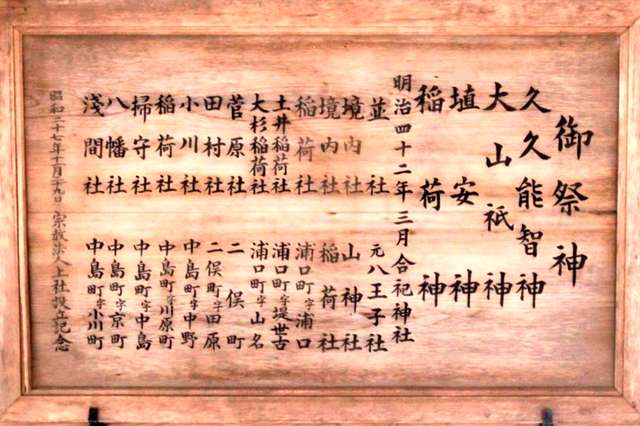 御祭神
久久能智神
大山祇神
埴安神
稲荷神
明治四十二年三月合祀神社
並社 元八王子社
境内社 山神社
境内社 稲荷社
稲荷社 浦口町字浦口
土井稲荷社 浦口町字堤世古
大杉稲荷社 浦口町字山名
菅原社 二俣町
田村社 二俣町字田原
小川社 中島町字中野
稲荷社 中島町字川原町
掃守社 中島町字中島
八幡社 中島町字京町
浅間社 中島町字小川町
昭和二十七年十一月十九日 宗教法人上社設立記念